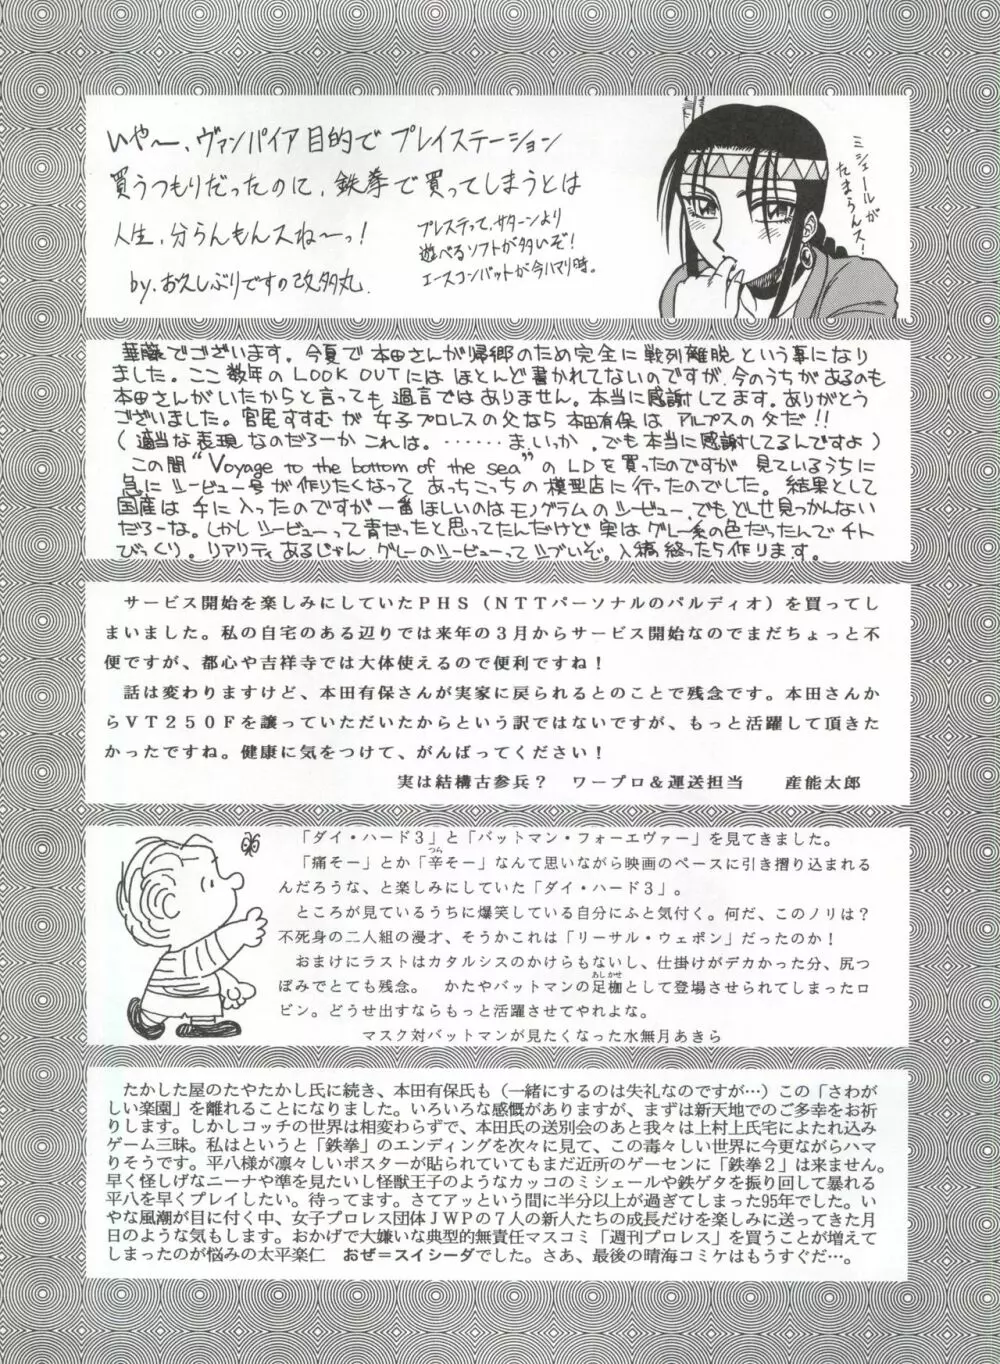 いや～、ヴァンパイア目的で プレイステーション
買うつもりだったのに、鉄拳で買ってしまうとは
人生、分らんもんスね～っ!
by. お久しぶりですの改多丸.
プレステって、サターンより
遊べるソフトが多いぞ!
エースコンバットが今ハマり時。
ミシェールが
たまらんス!
華藤でございます。今夏で本田さんが帰郷のため完全に戦列離脱という事になり
ました。ここ数年のLOOK OUTにはほとんど書かれてないのですが、今のうちがあるのも
本田さんがいたからと言っても過言ではありません。本当に感謝してます。ありがとう
ございました。宮尾すすむが女子プロレスの父なら本田有保はアルプスの父だ!!
(適当な表現なのだろーかこれは。……ま、いっか。でも本当に感謝してるんですよ)
この間"Voyage to the bottom of the sea"のLDを買ったのですが見ているうちに
急にシービュー号が作りたくなってあっちこっちの模型店に行ったのでした。結果として
国産は手に入ったのですが一番ほしいのはモノグラムのシービュー、でもどしせ見つかんない
だろーな。しかしシービューって青だったと思ってたんだけど実はグレー系の色だったんでチト
びっくり。リアリティあるじゃん、グレーのシービューってシブいぞ。入稿終ったら作ります。
サービス開始を楽しみにしていたＰＨＳ（ＮＴＴパーソナルのパルディオ）を買ってし
まいました。私の自宅のある辺りでは来年の３月からサービス開始なのでまだちょっと不
便ですが、都心や吉祥寺では大体使えるので便利ですね！
話は変わりますけど、本田有保さんが実家に戻られるとのことで残念です。本田さんか
らＶＴ２５０Ｆを譲っていただいたからという訳ではないですが、もっと活躍して頂きた
かったですね。健康に気をつけて、がんばってください！
実は結構古参兵？　ワープロ＆運送担当　　産能太郎
「ダイ・ハード３」と「バットマン・フォーエヴァー」を見てきました。
「痛そー」とか「辛そー」なんて思いながら映画のペースに引き摺り込まれる
つら
んだろうな、と楽しみにしていた「ダイ・ハード３」。
ところが見ているうちに爆笑している自分にふと気付く。何だ、このノリは？
不死身の二人組の漫才、そうかこれは「リーサル・ウェポン」だったのか！
おまけにラストはカタルシスのかけらもないし、仕掛けがデカかった分、尻つ
あしかせ
ぼみでとても残念。　かたやバットマンの足枷として登場させられてしまったロ
ビン。どうせ出すならもっと活躍させてやれよな。
マスク対バットマンが見たくなった水無月あきら
たかした屋のたやたかし氏に続き、本田有保氏も（一緒にするのは失礼なのですが…）この「さわが
しい楽園」を離れることになりました。いろいろな感慨がありますが、まずは新天地でのご多幸をお祈
りします。しかしコッチの世界は相変わらずで、本田氏の送別会のあと我々は上村上氏宅になだれ込み
ゲーム三昧。私はというと「鉄拳」のエンディングを次々に見て、この毒々しい世界に今更ながらハマ
りそうです。平八様が凛々しいポスターが貼られていてもまだ近所のゲーセンに「鉄拳２」は来ません。
早く怪しげなニーナや準を見たいし怪獣王子のようなカッコのミシェールや鉄ゲタを振り回して暴れる
平八を早くプレイしたい。待ってます。さてアッという間に半分以上が過ぎてしまった95年でした。い
やな風潮が目に付く中、女子プロレス団体ＪＷＰの７人の新人たちの成長だけを楽しみに送ってきた月
日のような気もします。おかげで大嫌いな典型的無責任マスコミ「週刊プロレス」を買うことが増えて
しまったのが悩みの太平楽仁　おぜ＝スイシーダでした。さあ、最後の晴海コミケはもうすぐだ…。